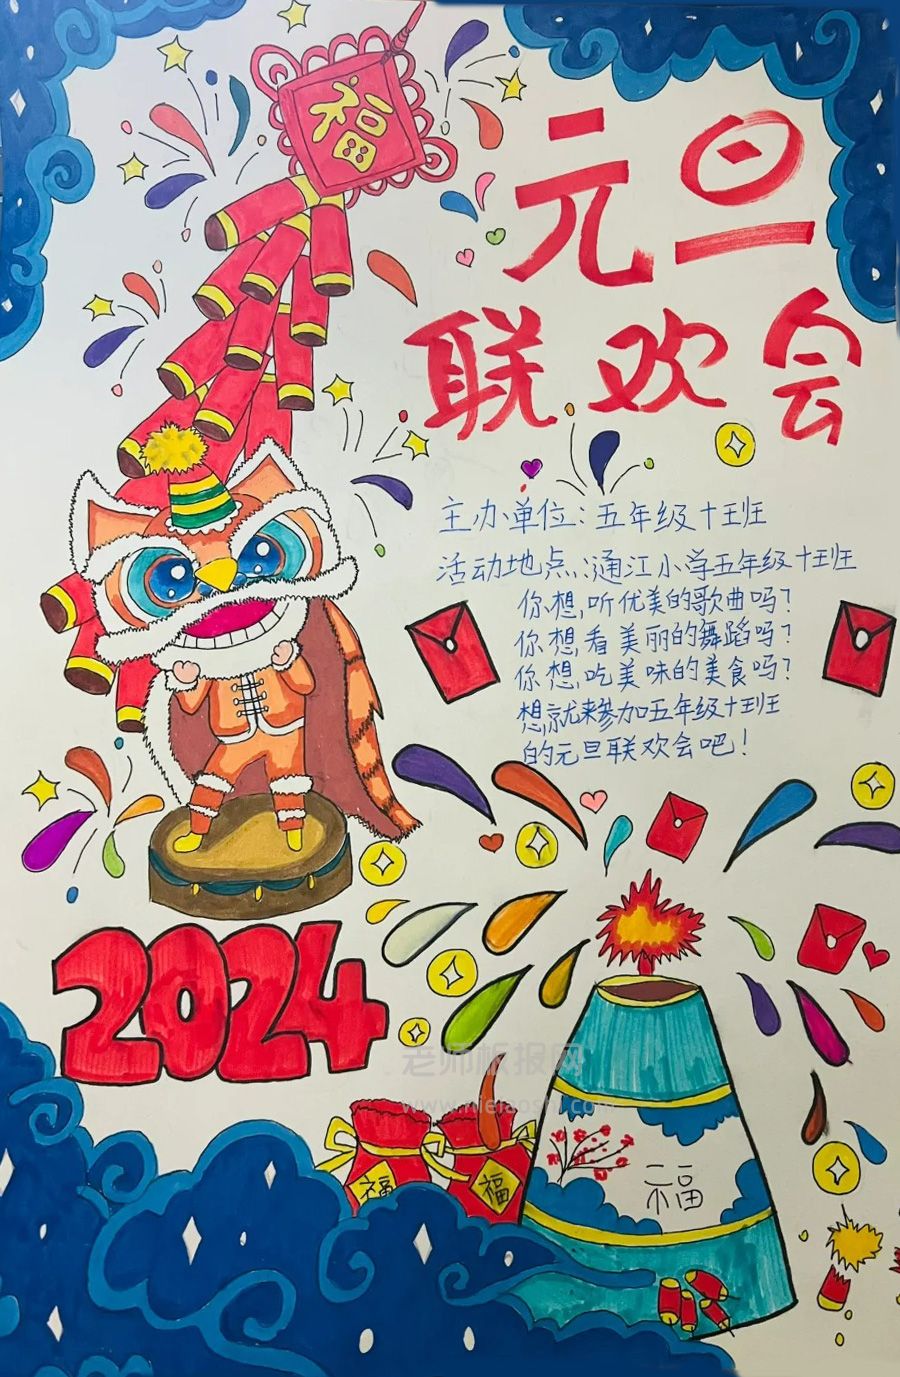 福
元旦
联欢会
主办单位：五年级十班
活动地点：通江小学五年级十班
你想,听优美的歌曲吗？
你想,看美丽的舞蹈吗？
你想,吃美味的美食吗？
想就来参加五年级十班
的元旦联欢会吧！
2024
老师板报网
福
福
福